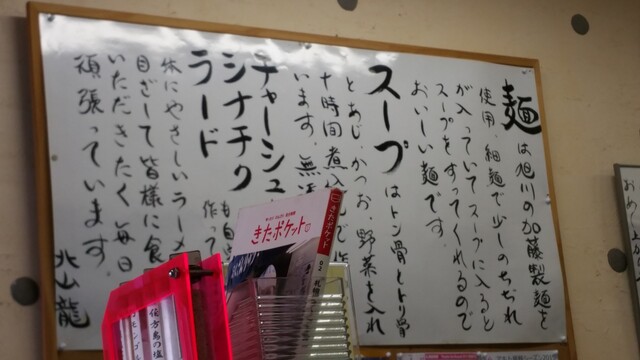 麺は旭川の加藤製麺を
使用、細麺で少しのちぢれ
が入っていてスープに入ると
スープをすってくれるので
おいしい麺です。
スープはトン骨とトリ骨
とあじ、かつお 野菜を入れ
十時間煮入んで作
います。無
チャーシュ
シナチク も自
ラード 作って
体にやさしいラーメ
目ざして皆様に食
いただきたく毎日
頑張っています。
北山龍
きたポケット
きたポケット